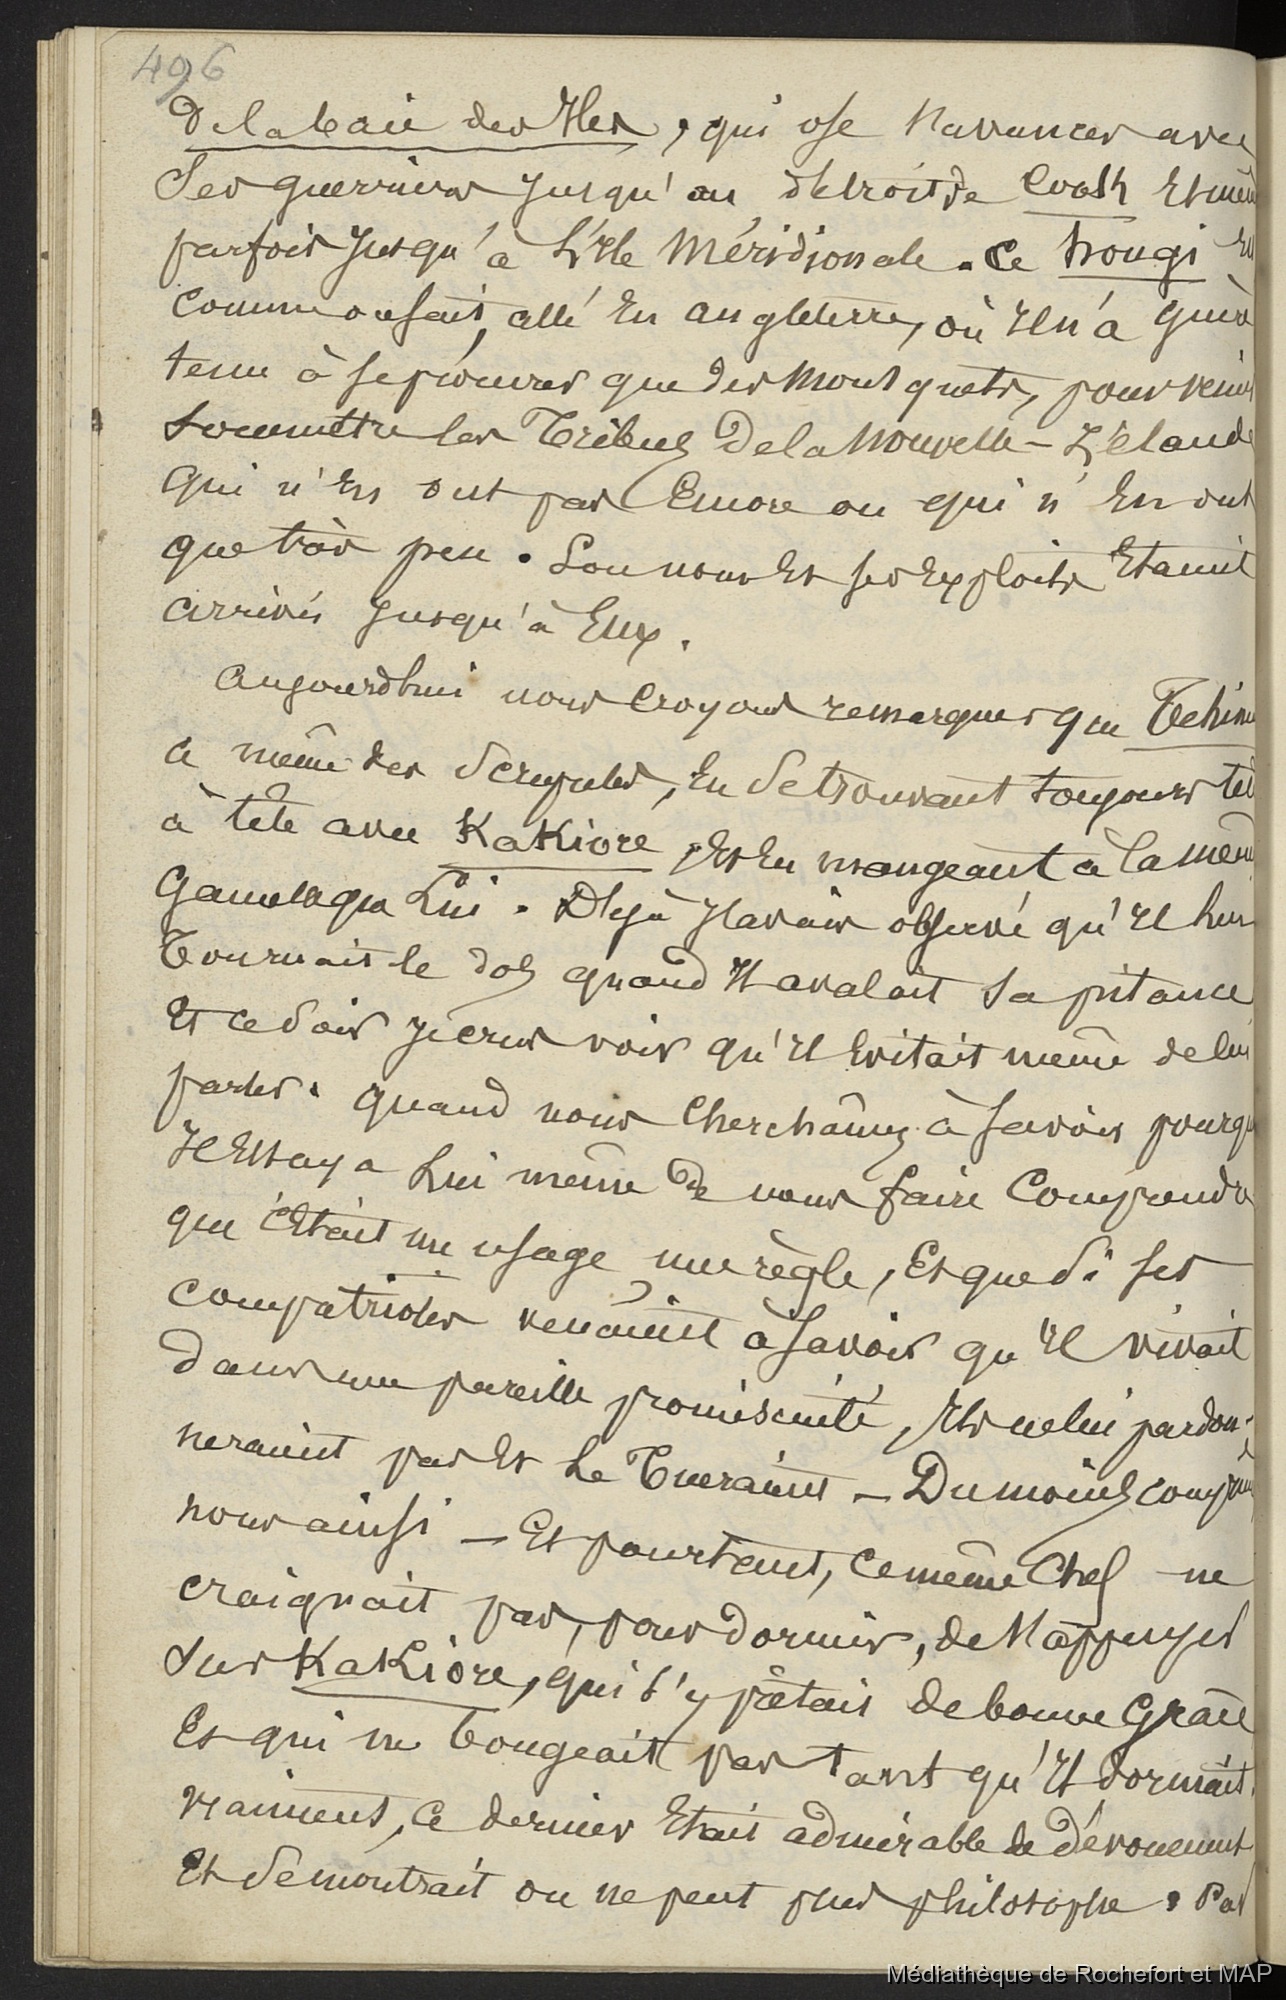 496
De la baie des Iles, qui ose s'avancer avec
ses guerriers jusqu'au détroit de Cook Et même
parfois jusqu'à L'Ile Méridionale. Ce hougi Est
comme on sait, allé En angleterre, où Il n'a guère
tenu à se procurer que des Mousquets, pour venir
soumettre les Tribus De la Nouvelle-Zélande
qui n'En ont pas Encore ou qui n'En ont
que très peu. Son nom Et ses Exploits Etaient
arrivés jusqu'à Eux.
Aujourdhui nous Croyons remarquer que Tehinu
a même des Scrupules, En se trouvant toujours tête
à tête avec KaKiore, Et En mangeant à la même
Gamelle que Lui. Déjà J'avais observé qu'Il lui
Tournait le dos quand Il avalait sa pitance
Et ce soir je crus voir qu'Il Evitait même de lui
parler. Quand nous Cherchâmes à savoir pourquoi
Il Essaya Lui même De nous faire Comprendre
que c'Etait un usage une règle, Et que si ses
compatriotes venaient à savoir qu'Il vivait
dans une pareille promiscuité, Ils ne lui pardon-
neraient pas Et Le Tueraient — Du moins comprîmes
nous ainsi — Et pourtant, Ce même Chef ne
craignait pas, pour dormir, de s'appuyer
sur KaKiore, qui s'y prêtait de bonne Grâce
Et qui ne bougeait pas tant qu'Il dormait.
Vraiment, Ce dernier Etait admirable de dévouement
Et se montrait on ne peut plus philosophe. Par
Médiathèque de Rochefort et MAP